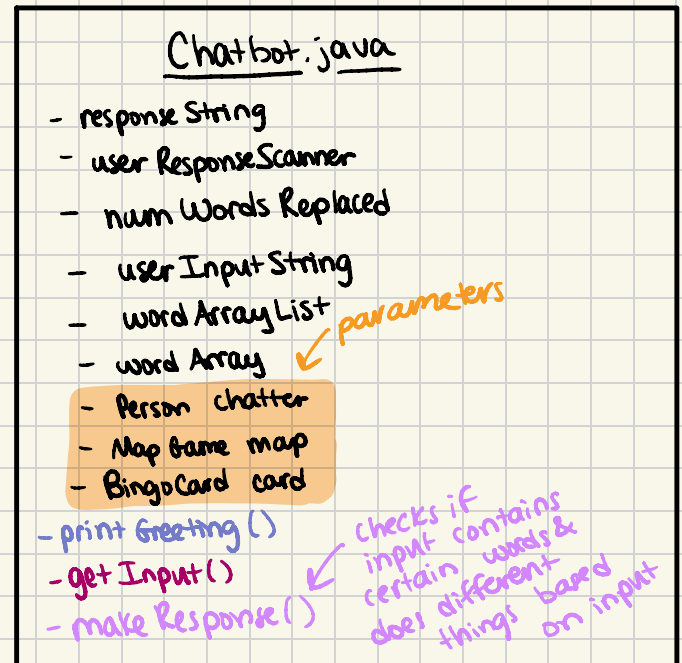 Chatbot.java
- responseString
- userResponseScanner
- numWordsReplaced
- userInputString
- wordArrayList
- wordArray
parameters
- Person chatter
- MapGame map
- BingoCard card
- printGreeting()
- getInput()
- makeResponse()
checks if
input contains
certain words &
does different
things based
on input